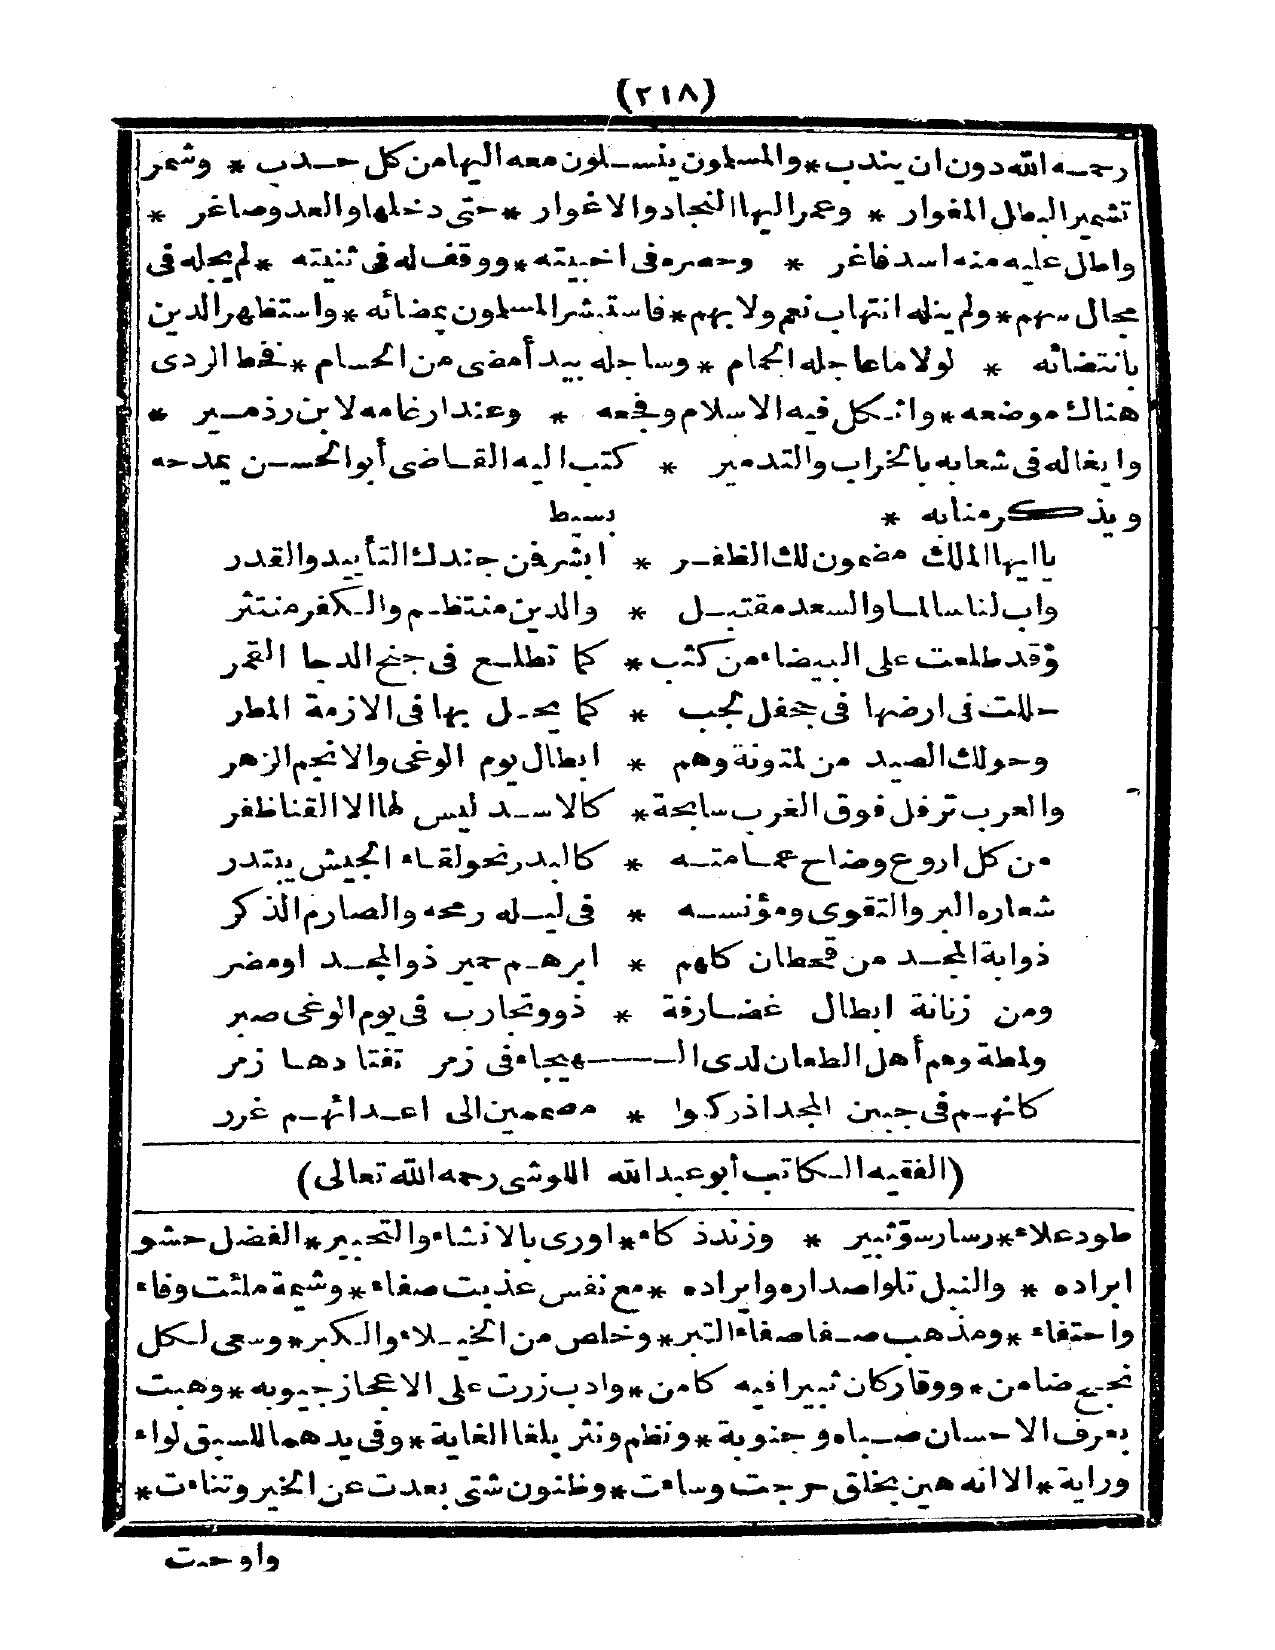 (٢١٨)
رحمه الله دون ان يندب * والمسلمون ينسلون معه اليها من كل حدب * وشمر
تشمير البطل المغوار * وعمر اليها النجاد والاغوار * حتى دخلها والعدو صاغر *
واطل عليه منه اسد فاغر * وحصره في اخبيته * ووقف له في ثنيته * لم يجله في
مجال سهم * ولم ينله انتهاب نعم ولا بهم * فاستبشر المسلمون بمضائه * واستظهر الدين
بانتضائه * لولا ما عاجله الحمام * وساجله بيد أمضى من الحسام * فحط الردى
هناك موضعه * واثكل فيه الاسلام وفجعه * وعند ارغامه لابن رذمير *
وايغاله في شعابه بالخراب والتدمير * كتب اليه القاضى أبو الحسن يمدحه
ويذكر منابه * بسيط
ياايها الملك مضمون لك الظفر * ابشر فمن جندك التأييد والقدر
واب لنا سالما والسعد مقتبل * والدين منتظم والكفر منتثر
وقد طلعت على البيضاء من كثب * كما تطلع في جنح الدجا القمر
حللت في ارضها في جحفل لجب * كما يحل بها في الازمة المطر
وحولك الصيد من لمتونة وهم * ابطال يوم الوغى والانجم الزهر
والعرب ترفل فوق الغرب سابحة * كالاسد ليس لها الا القنا ظفر
من كل اروع وضاح عمامته * كالبدر نحو لقاء الجيش يبتدر
شعاره البر والتقوى ومؤنسه * في ليله رمحه والصارم الذكر
ذوابة المجد من قحطان كلهم * ابرهم حمير ذو المجد او مضر
ومن زنانة ابطال غضارفة * ذوو تجارب في يوم الوغى صبر
ولمطة وهم أهل الطعان لدى الـــهيجاء في زمر تقتادها زمر
كانهم في جبين المجد اذ ركبوا * مصممين الى اعدائهم غرر
(الفقيه الكاتب أبو عبدالله اللوشى رحمه الله تعالى)
طود علاء * رسا رسو ثبير * وزند ذكاء * اورى بالانشاء والتحبير * الفضل حشو
ابراده * والنبل تلو اصداره وايراده * مع نفس عذبت صفاء * وشيمة ملئت وفاء
واحتفاء * ومذهب صفا صفاء التبر * وخلص من الخيلاء والكبر * وسعى لكل
نجح ضامن * ووقار كان ثبيرا فيه كامن * وادب زرت على الاعجاز جيوبه * وهبت
بعرف الاحسان صباه وجنوبة * ونظم ونثر بلغا الغاية * وفي يدهما للسبق لواء
وراية * الا انه هين بخلق حرجت وساءت * وظنون شتى بعدت عن الخير وتناءت *
واوحت